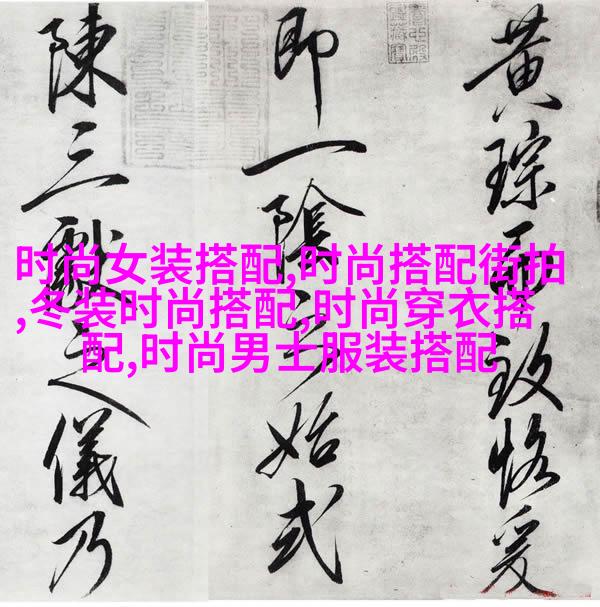 时尚女装搭配,时尚搭配街拍
,冬装时尚搭配,时尚穿衣搭
配,时尚男士服装搭配
黄琮而致恪爰
即一陰之始式
陳三獻之儀乃